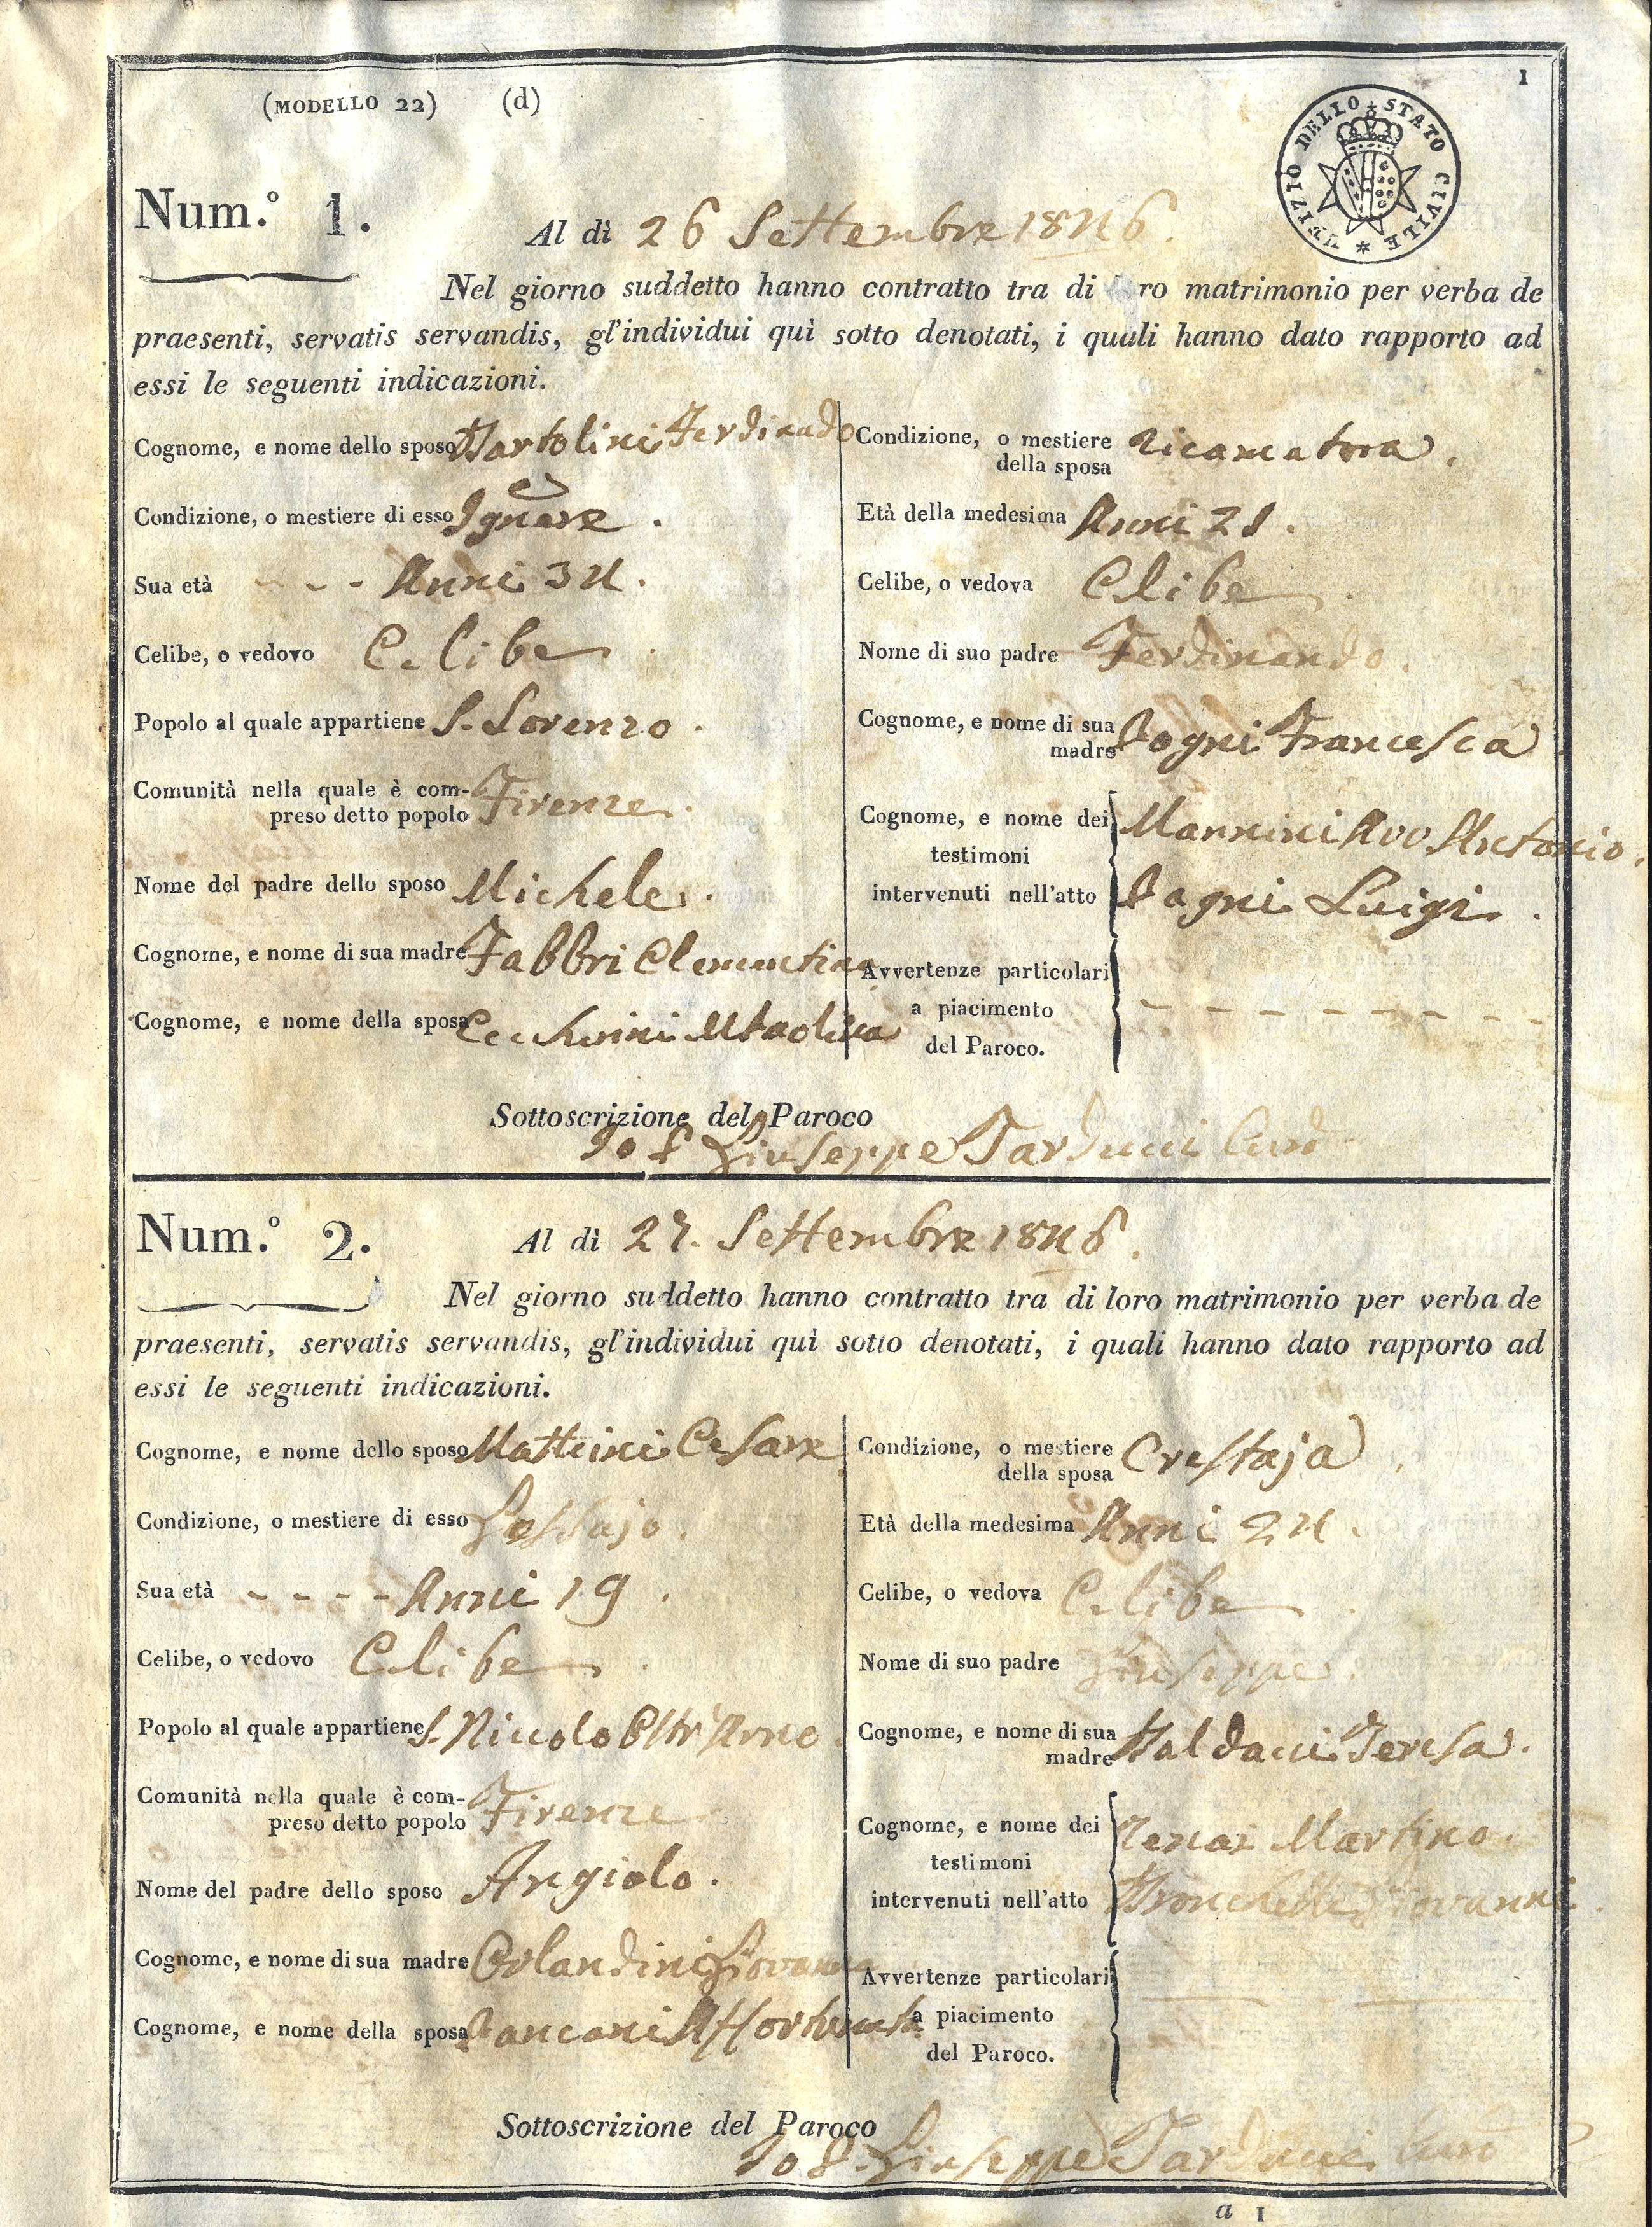 1
(MODELLO 22) (d)
UFIZIO DELLO STATO CIVILE
Num.° 1.
Al dì 26 Settembre 1846.
Nel giorno suddetto hanno contratto tra di ro matrimonio per verba de
praesenti, servatis servandis, gl'individui quì sotto denotati, i quali hanno dato rapporto ad
essi le seguenti indicazioni.
Cognome, e nome dello sposo Bartolini Ferdinando
Condizione, o mestiere di esso
Sua età - - - Anni 34.
Celibe, o vedovo Celibe.
Popolo al quale appartiene S. Lorenzo.
Comunità nella quale è com-
preso detto popolo Firenze.
Nome del padre dello sposo Michele.
Cognome, e nome di sua madre Fabbri Clementina
Cognome, e nome della sposa Ceccherini
Condizione, o mestiere
della sposa Ricamatora.
Età della medesima Anni 21.
Celibe, o vedova Celibe.
Nome di suo padre Ferdinando.
Cognome, e nome di sua
madre Francesca
Cognome, e nome dei Mannini Antonio.
testimoni
intervenuti nell'atto Luigi.
Avvertenze particolari
a piacimento - - - - - - - -
del Paroco.
Sottoscrizione del Paroco
Giuseppe Tarducci
Num.° 2.
Al dì 27. Settembre 1846.
Nel giorno suddetto hanno contratto tra di loro matrimonio per verba de
praesenti, servatis servandis, gl'individui quì sotto denotati, i quali hanno dato rapporto ad
essi le seguenti indicazioni.
Cognome, e nome dello sposo Matteini Cesare
Condizione, o mestiere di esso
Sua età - - - - Anni 19.
Celibe, o vedovo Celibe.
Popolo al quale appartiene S. Niccolo Oltr'Arno
Comunità nella quale è com-
preso detto popolo Firenze
Nome del padre dello sposo Angiolo.
Cognome, e nome di sua madre Orlandini Giovanna
Cognome, e nome della sposa
Condizione, o mestiere
della sposa Crestaja.
Età della medesima Anni 24.
Celibe, o vedova Celibe.
Nome di suo padre Giuseppe.
Cognome, e nome di sua
madre Baldacci Teresa.
Cognome, e nome dei Martino.
testimoni
intervenuti nell'atto Giovanni.
Avvertenze particolari
a piacimento
del Paroco.
Sottoscrizione del Paroco
Giuseppe Tarducci
a 1